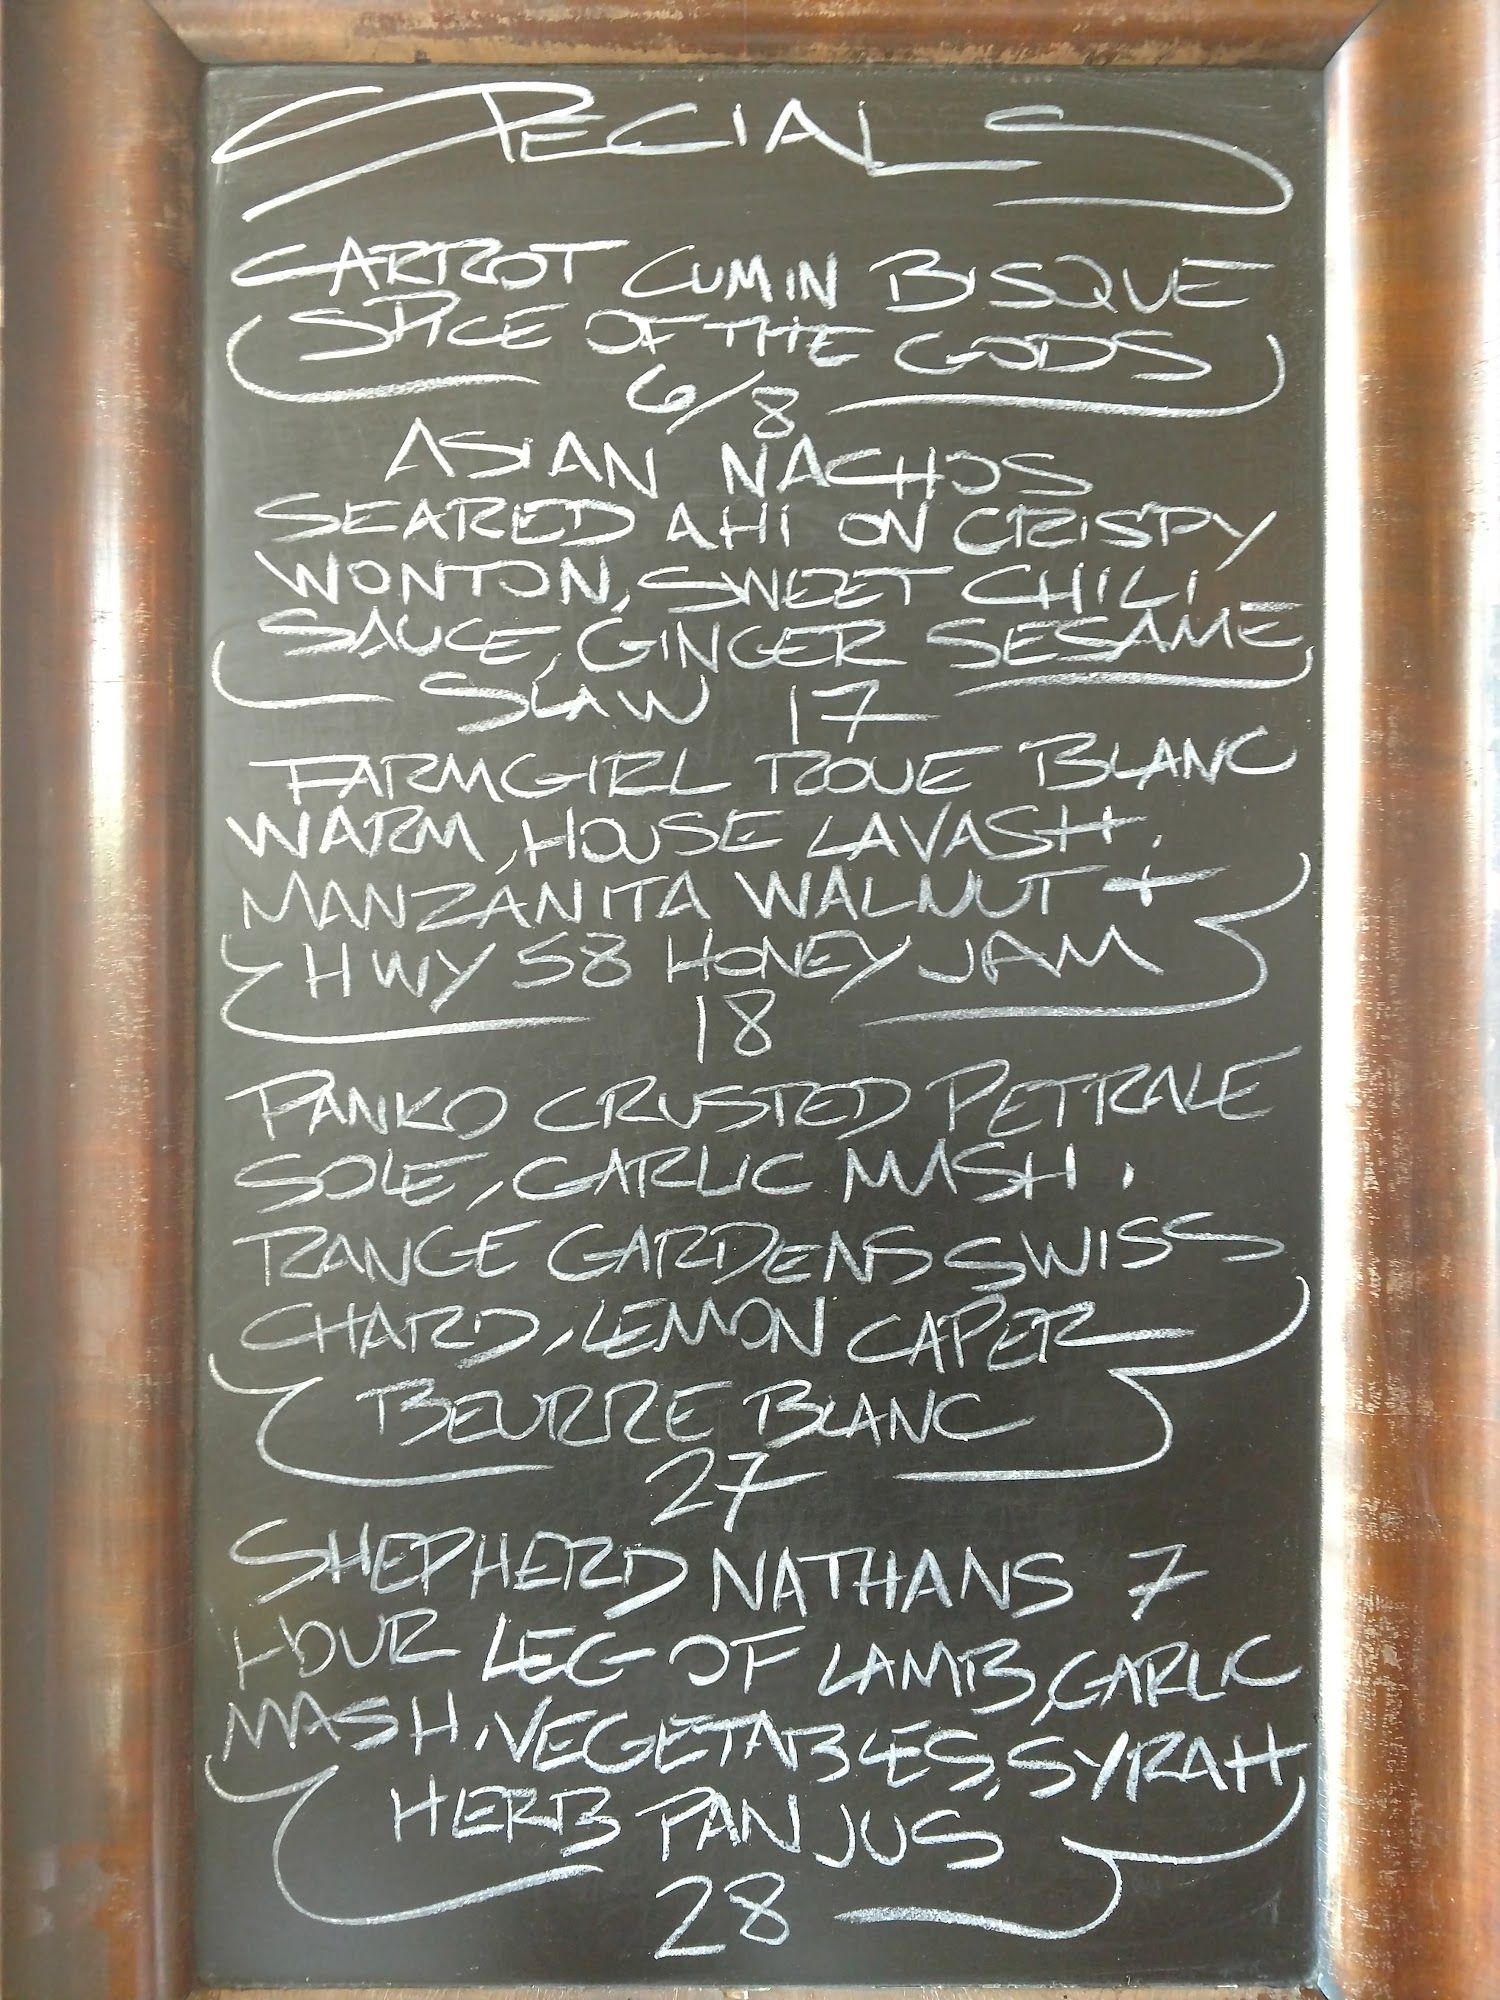 SPECIALS
CARROT CUMIN BISQUE
SPICE OF THE GODS
6/8
ASIAN NACHOS
SEARED AHI ON CRISPY
WONTON, SWEET CHILI
SAUCE, GINGER SESAME
SLAW 17
FARMGIRL ROUE BLANC
WARM, HOUSE LAVASH,
MANZANITA WALNUT +
HWY 58 HONEY JAM
18
PANKO CRUSTED PETRALE
SOLE, GARLIC MASH,
RANGE GARDENS SWISS
CHARD, LEMON CAPER
BEURRE BLANC
27
SHEPHERD NATHANS 7
HOUR LEG OF LAMB, GARLIC
MASH, VEGETABLES, SYRAH
HERB PAN JUS
28